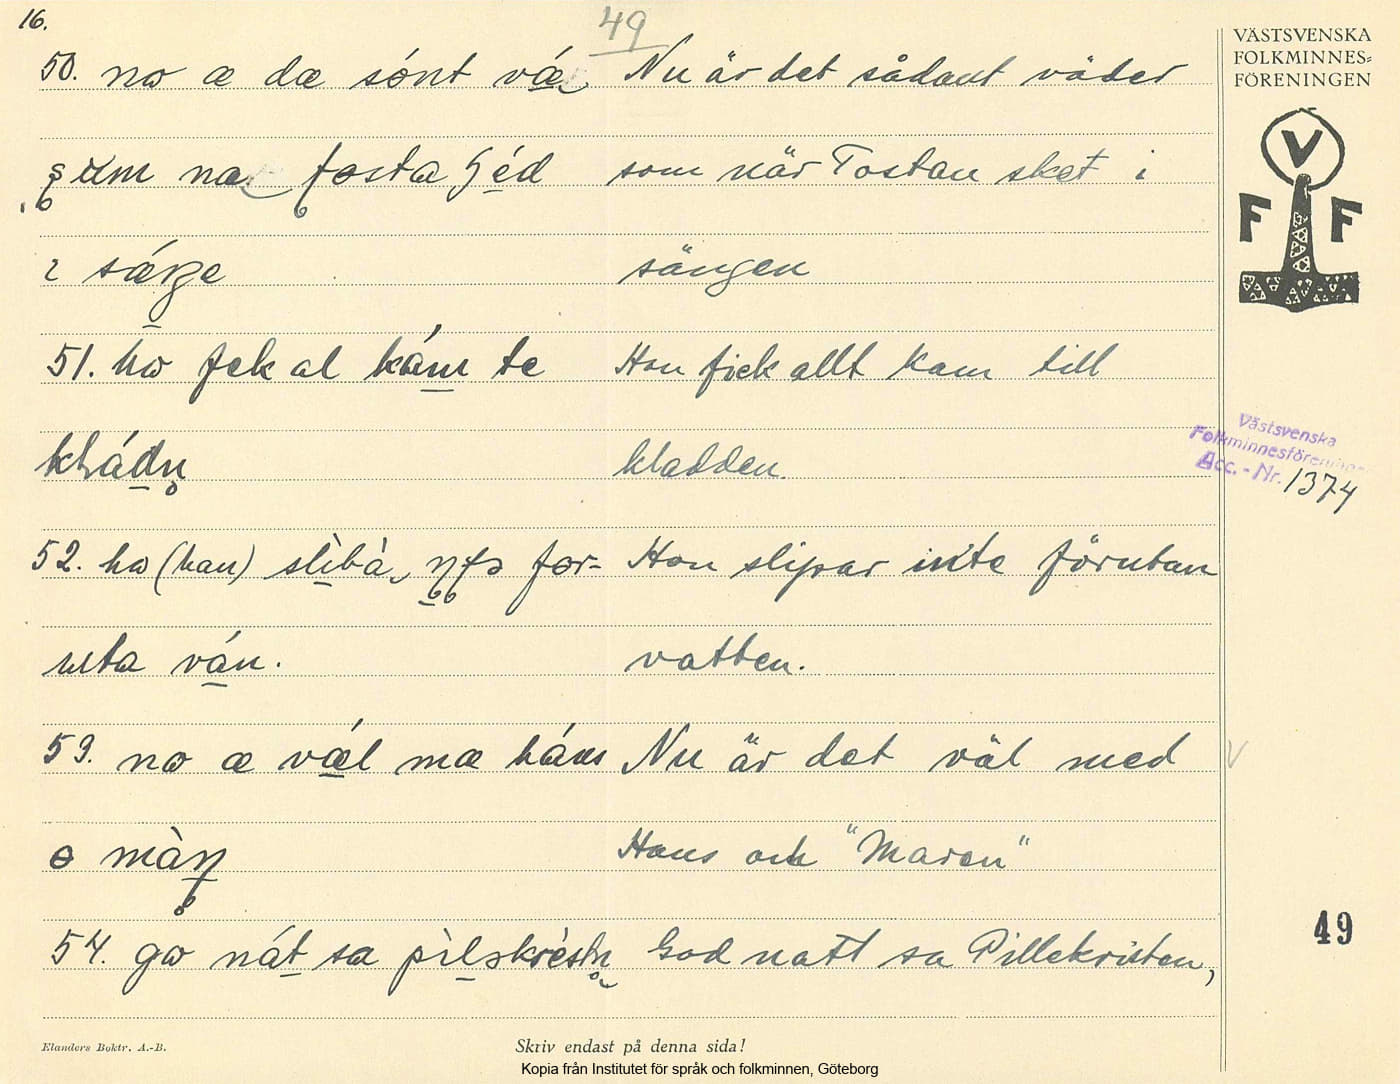 16.
49
VÄSTSVENSKA
FOLKMINNES=
FÖRENINGEN
V
F F
50. nω æ dæ sónt væ Nu är det sådant väder
som när Tostan sket i
ı sǽŋe sängen
51. hω fek al kám te Hon fick allt kam till
kládn̥ kladden.
52. hω (han) Hon slipar inte förutan
uta ván. vatten.
53. nω æ vǽl mæ háns Nu är det väl med
ɵ màn̥ Hans och "Maren"
54. gω nát sa pìləkrèstn̥ God natt sa Pillekristen,
Västsvenska
Folkminnesföreningen
Acc.-Nr. 1374
49
Elanders Boktr. A.-B.
Skriv endast på denna sida!
Kopia från Institutet för språk och folkminnen, Göteborg